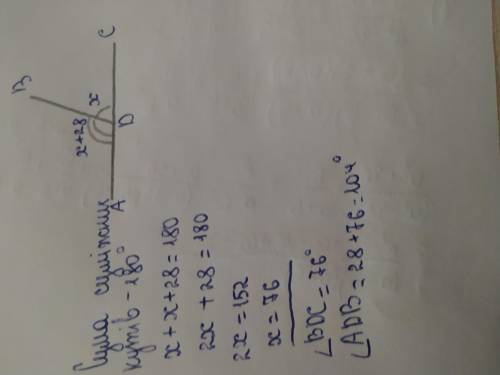 B
x+28
x
A
D
C
Сума суміжних
кутів – 180°
x + x + 28 = 180
2x + 28 = 180
2x = 152
x = 76
∠BDC = 76°
∠ADB = 28 + 76 = 104°